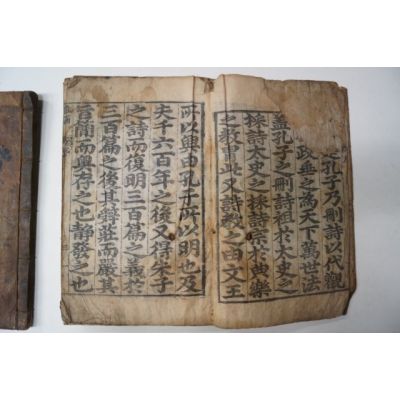 之孔子乃刪詩以代觀
政垂之爲天下萬世法
盖孔子之刪詩祖於太史之
採詩太史之採詩宗於典樂
之敎胄此又詩敎之由文王
所以興由孔子所以明也及
夫千六百年之後又得朱子
之詩而復明三百篇之義於
三百篇之後其辭莊而嚴其
旨簡而奧存之也靜發之也